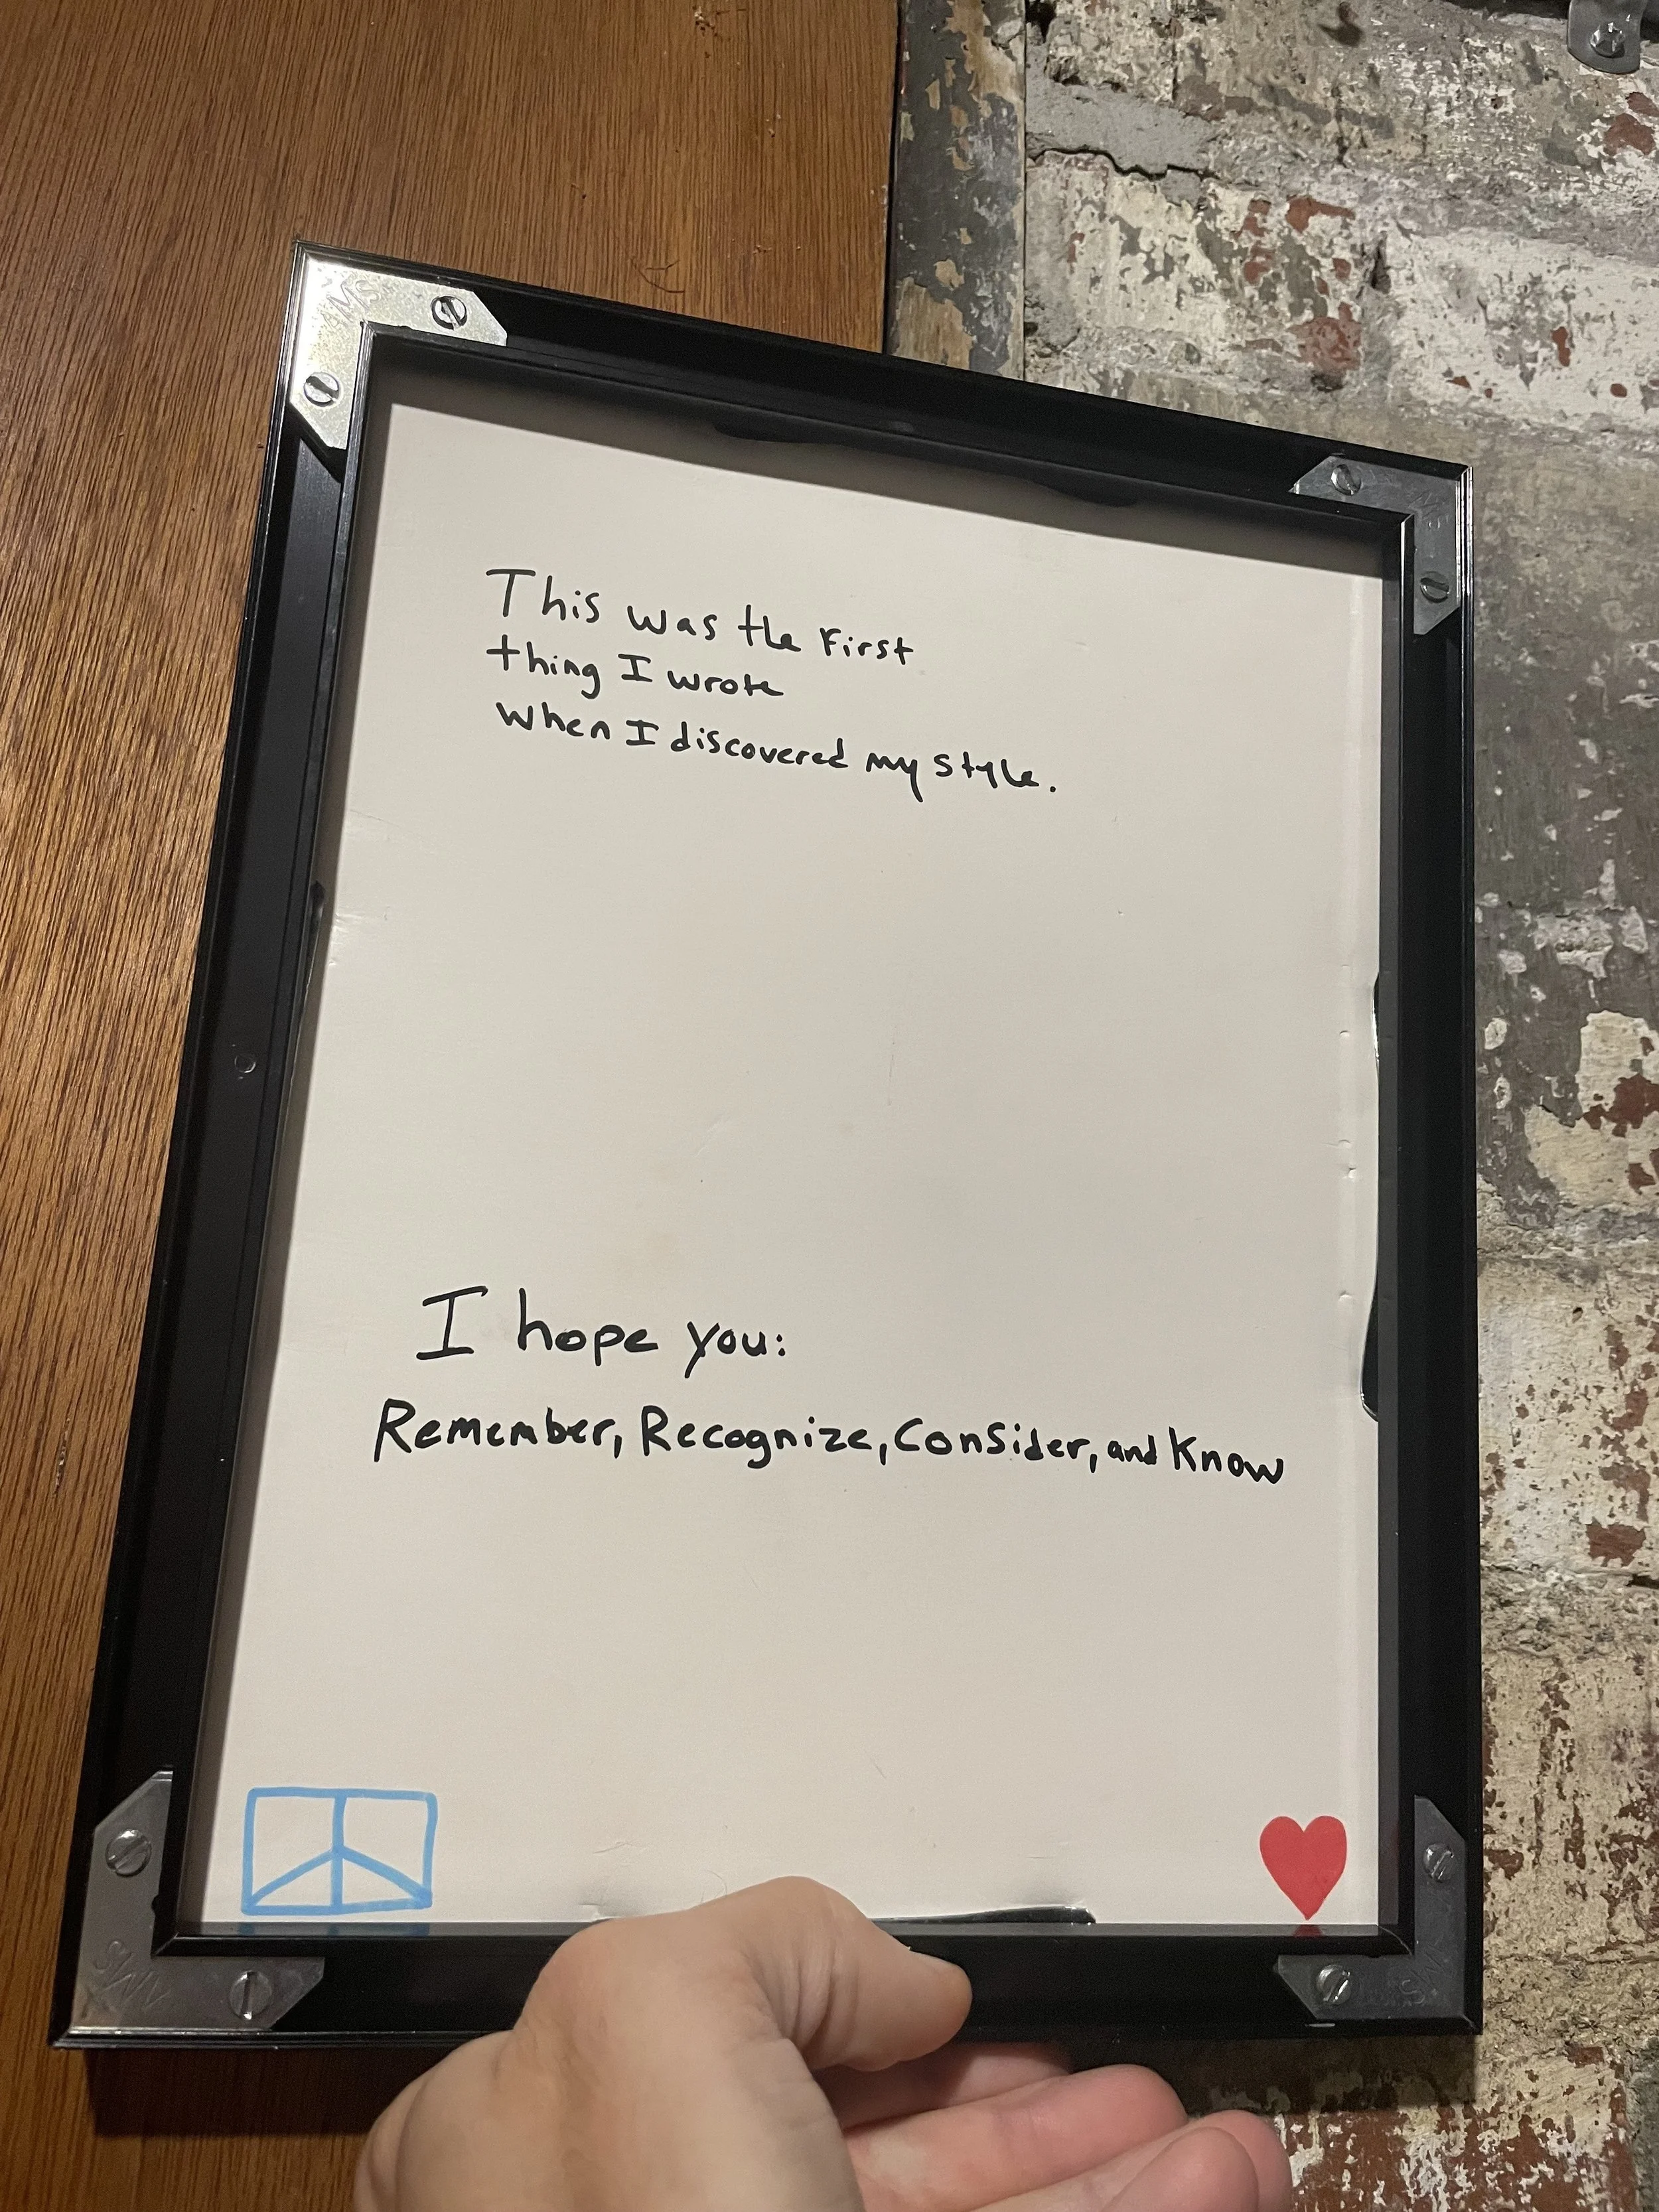 This was the First
thing I wrote
when I discovered my style.
I hope you:
Remember, Recognize, Consider, and Know